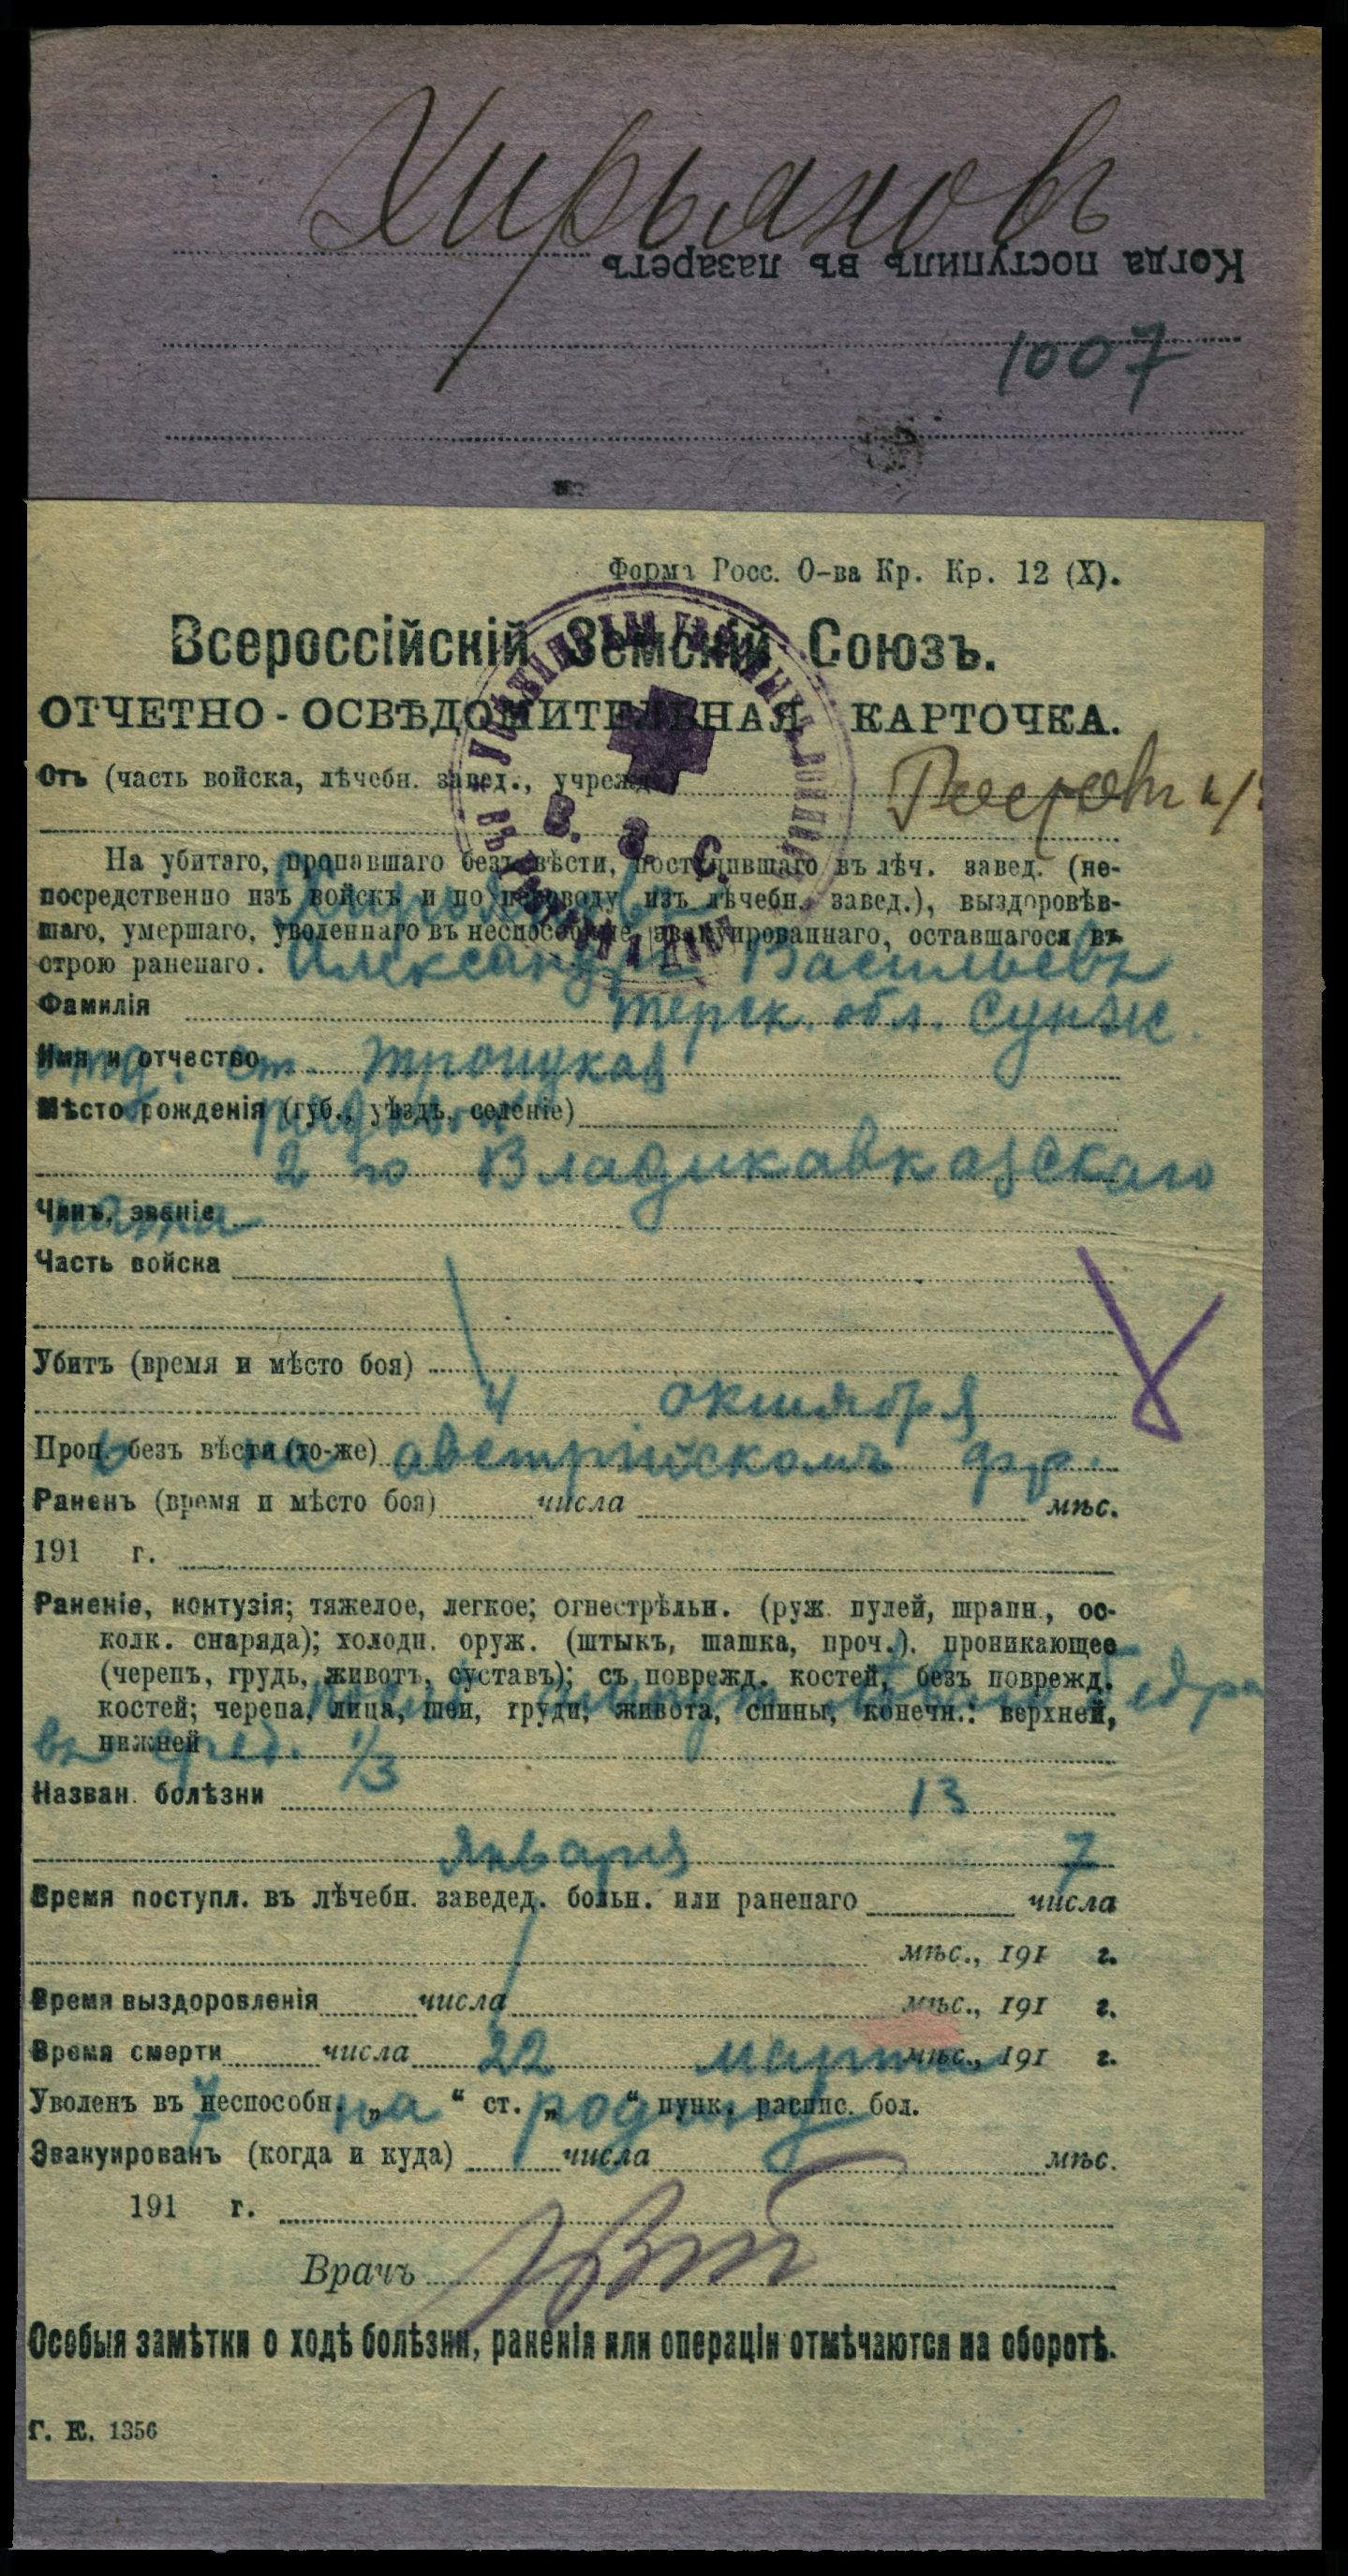 Хирьяновъ
Когда поступилъ въ лазаретъ
1007
Форма Росс. О-ва Кр. Кр. 12 (X).
Всероссійскій Земскій Союзъ.
ОТЧЕТНО-ОСВѢДОМИТЕЛЬНАЯ КАРТОЧКА.
Отъ (часть войска, лѣчебн. завед., учрежд. Ростовъ н/
В. З. С.
На убитаго, пропавшаго безъ вѣсти, поступившаго въ лѣч. завед. (не-
посредственно изъ войскъ и по переводу изъ лѣчебн. завед.), выздоровѣв-
шаго, умершаго, уволеннаго въ неспособные, эвакуированнаго, оставшагося въ
строю раненаго. Александръ Васильевъ
Фамилія Терск. обл. Сунж.
Имя и отчество отд. ст. Троицкая
Мѣсто рожденія (губ., уѣздъ, селеніе) рядовой
2 го Владикавказскаго
Чинъ, званіе полка
Часть войска
Убитъ (время и мѣсто боя)
4 октября
Проп. безъ вѣсти (то-же) 6 на австрійскомъ фр.
Раненъ (время и мѣсто боя) числа мѣс.
191 г.
Раненіе, контузія; тяжелое, легкое; огнестрѣльн. (руж. пулей, шрапн., ос-
колк. снаряда); холодн. оруж. (штыкъ, шашка, проч.). проникающее
(черепъ, грудь, животъ, суставъ); съ поврежд. костей, безъ поврежд.
костей; черепа, лица, шеи, груди, живота, спины, конечн.: верхней, бедра
нижней въ сред. 1/3
Назван. болѣзни 13
января 7
Время поступл. въ лѣчебн. заведед. больн. или раненаго числа
мѣс., 191 г.
Время выздоровленія числа мѣс., 191 г.
Время смерти числа 22 марта мѣс., 191 г.
Уволенъ въ неспособн. 7 „ на “ ст. „ родину “ пунк. распис. бол.
Эвакуированъ (когда и куда) числа мѣс.
191 г.
Врачъ
Особыя замѣтки о ходѣ болѣзни, раненія или операціи отмѣчаются на оборотѣ.
Г. Е. 1356